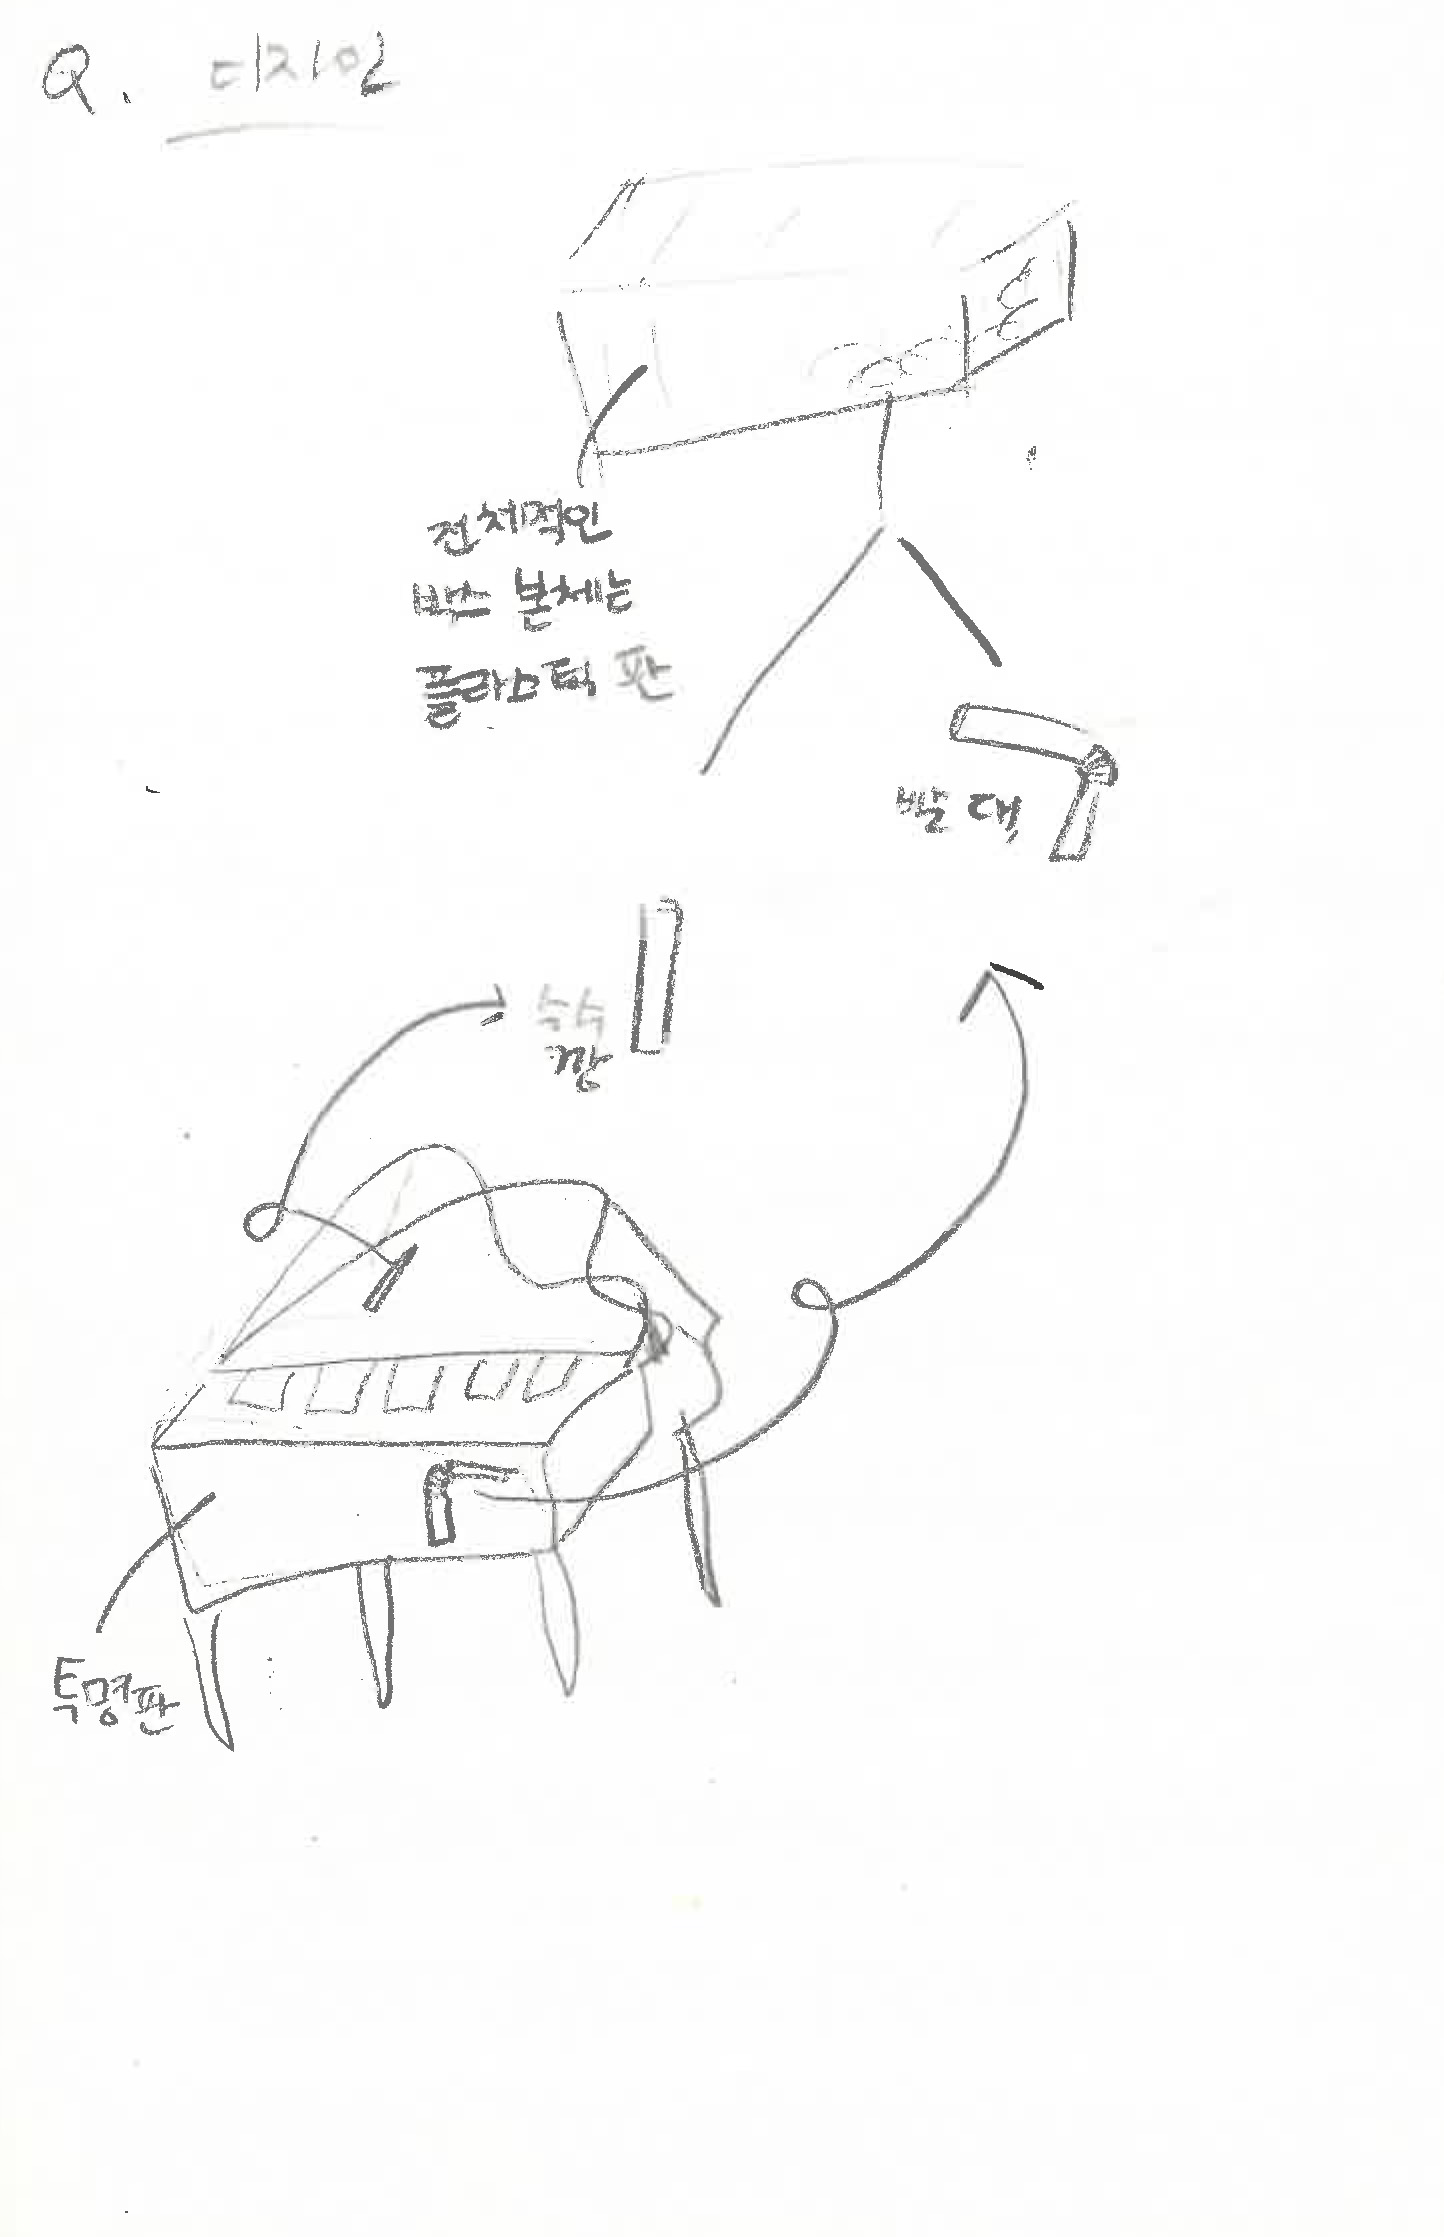 Q. 디자인
전체적인
박스 본체는
플라스틱 판
빨대
수수
깡
투명판